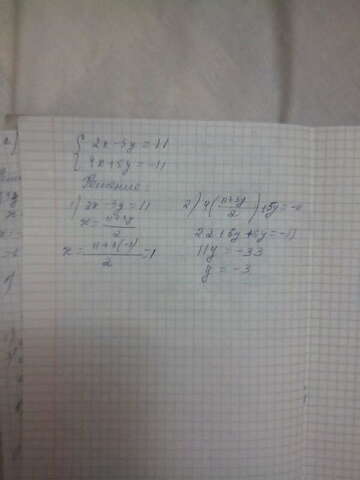 { 2x-3y=11
{ 4x+5y=-11
Решение:
1) 2x-3y=11
x=\frac{11+3y}{2}
x=\frac{11+3(-3)}{2}=1
2) 4(\frac{11+3y}{2})+5y=-11
22+6y+5y=-11
11y=-33
y=-3